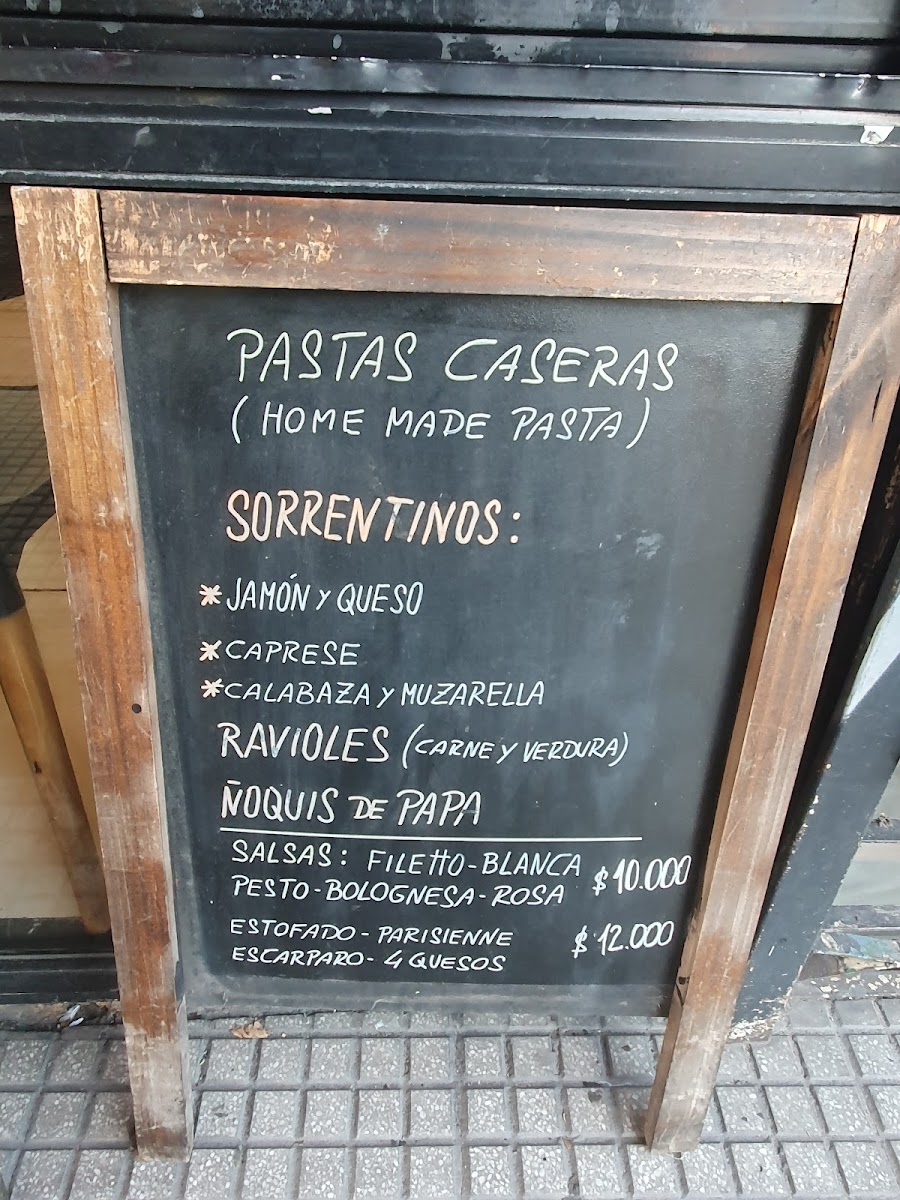 PASTAS CASERAS
(HOME MADE PASTA)
SORRENTINOS:
* JAMÓN Y QUESO
* CAPRESE
* CALABAZA Y MUZARELLA
RAVIOLES (CARNE Y VERDURA)
ÑOQUIS DE PAPA
SALSAS: FILETTO-BLANCA
PESTO-BOLOGNESA-ROSA $10.000
ESTOFADO-PARISIENNE $12.000
ESCARPARO-4 QUESOS